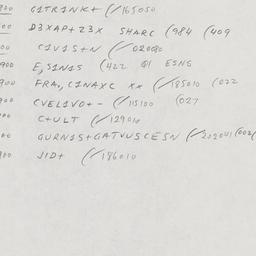 900 G1TR1NK+ (/165050
00 D3XAP+Z3X SHARC (984 (409
00 C1V1S+N (/02090
900 E,S1N1S (422 Q1 ESNG
900 FRA,,C1NAXC XX (/185010 (022
900 CVEL1VO+- (/115100 (027
00 C+ULT (/129010
00 GURN1S+GATVUSCESN (/202041(002(
900 J1D+ (/186010